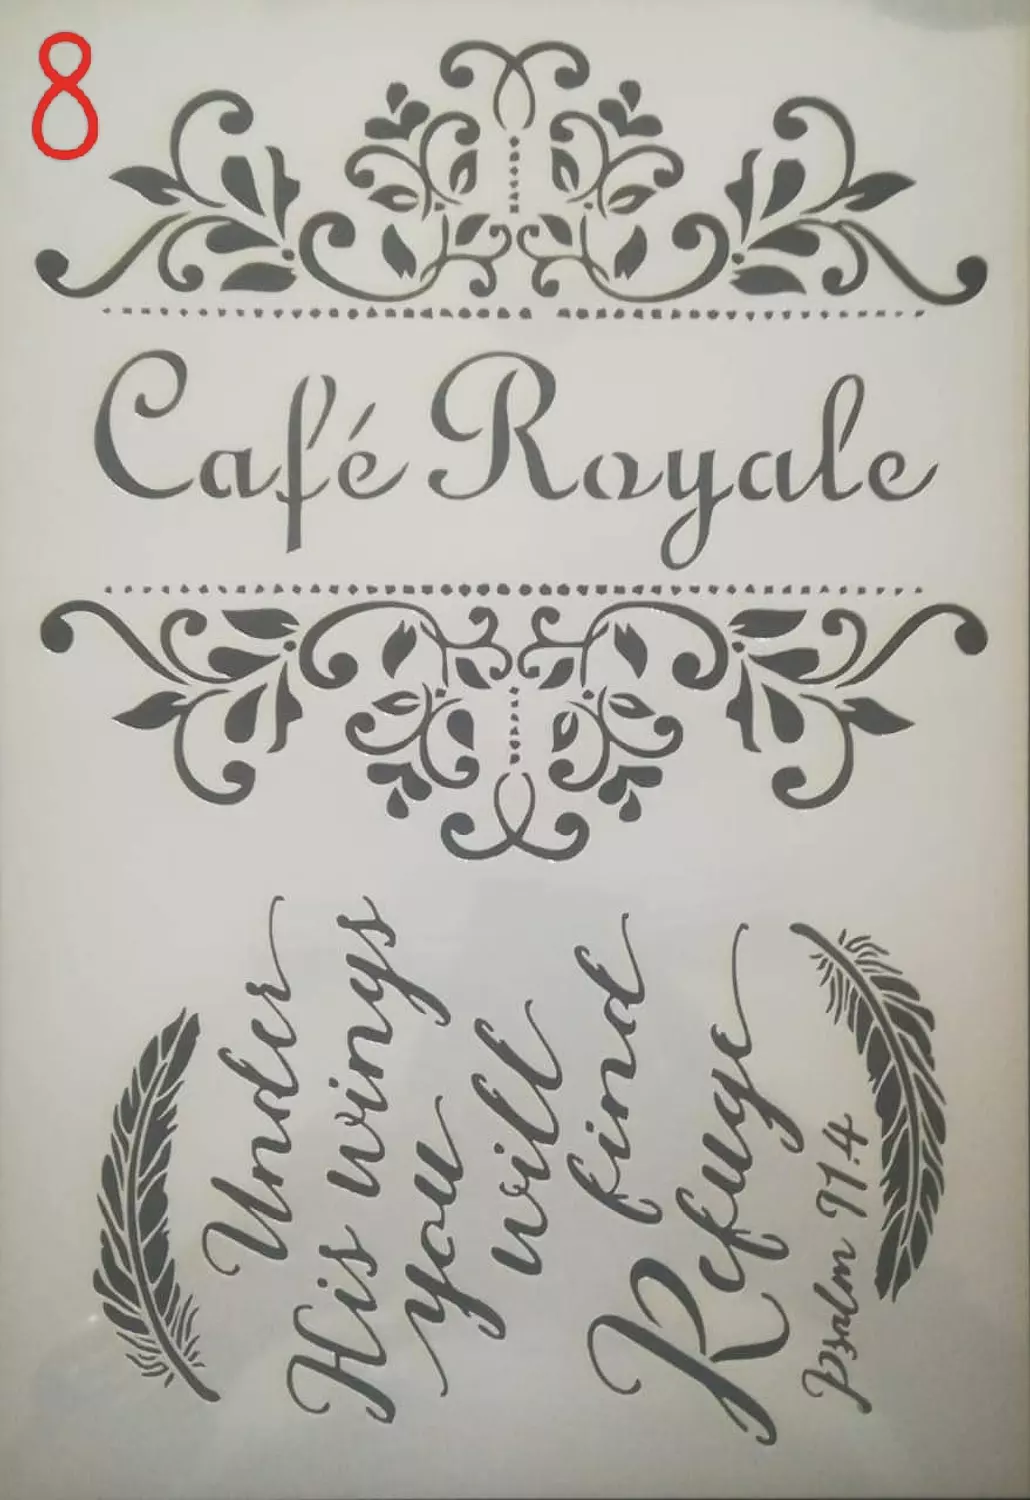 8
Café Royale
Under
His wings
you
will
find
Refuge
Psalm 91.4